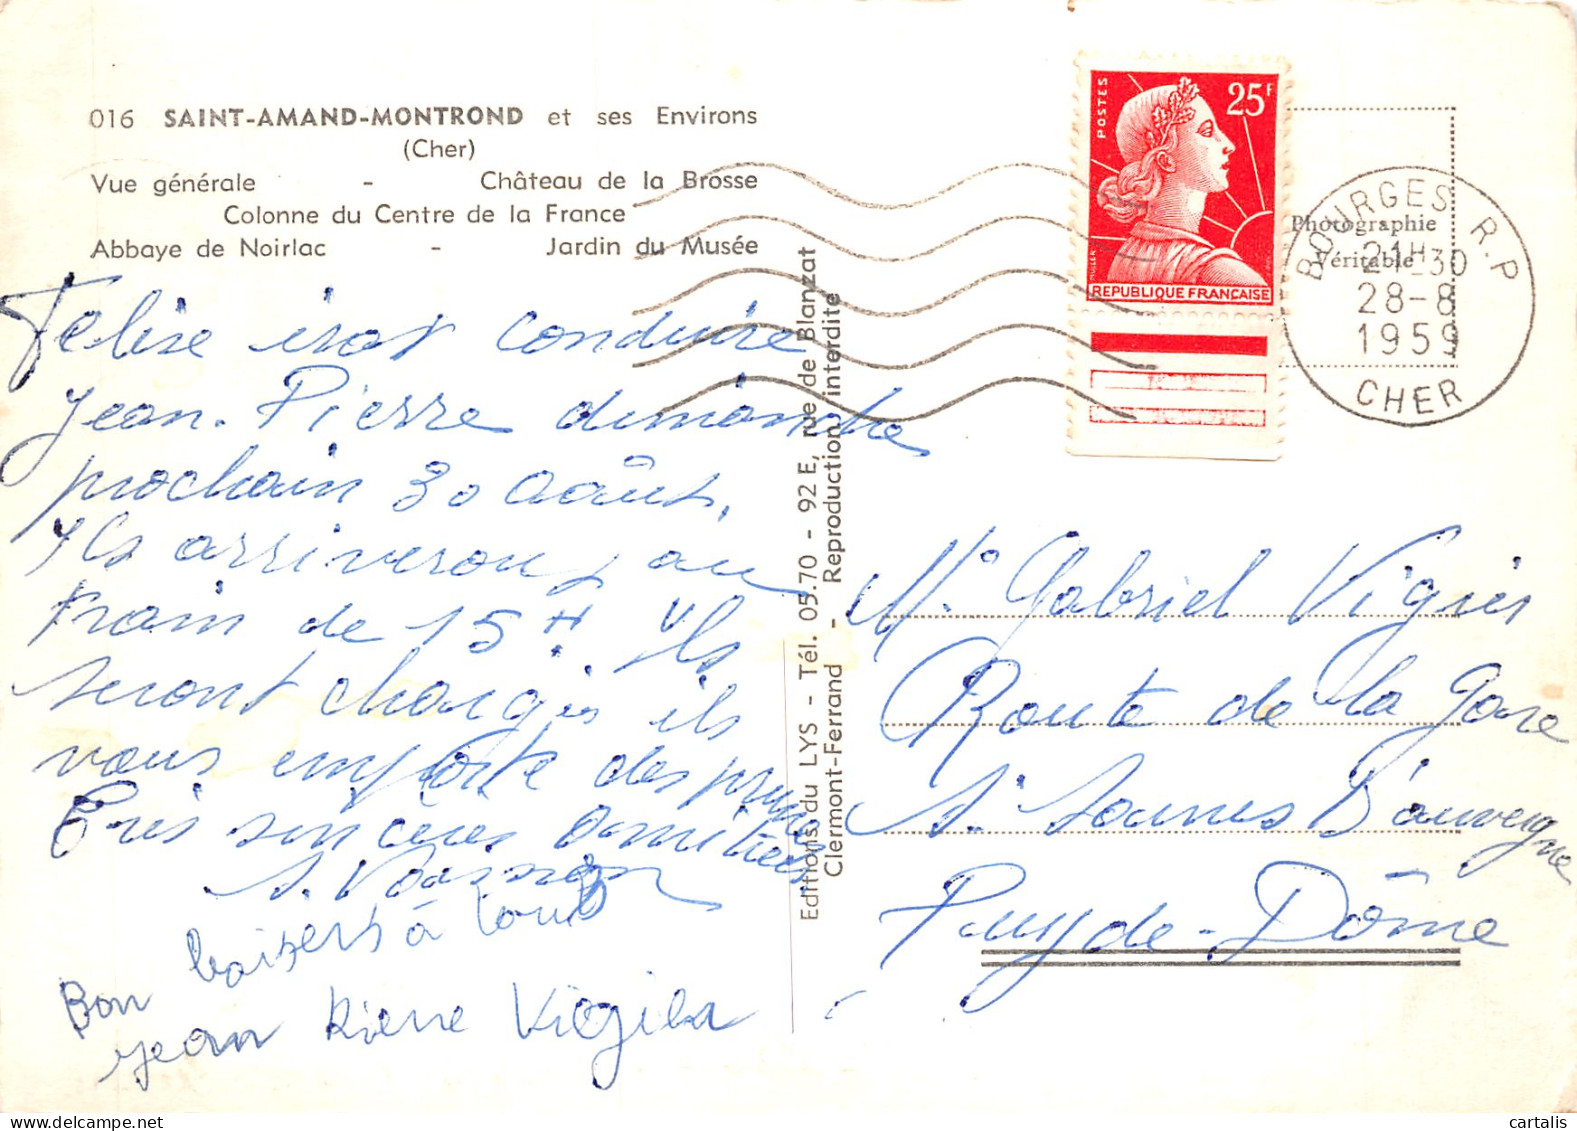 016 SAINT-AMAND-MONTROND et ses Environs
(Cher)
Vue générale - Château de la Brosse
Colonne du Centre de la France
Abbaye de Noirlac - Jardin du Musée
Felise irat conduire
Jean-Pierre dimanche
prochain 30 Août.
Ils arriveront au
train de 15 H. Ils
seront chargés ils
vous emporte des prunes
Très sincères amitiées
Bon baisers à tous
Jean Pierre
Editions du LYS - Tél. 05.70 - 92 E, rue de Blanzat
Clermont-Ferrand - Reproduction interdite
POSTES
25F
MULLER
REPUBLIQUE FRANÇAISE
Photographie
Véritable
BOURGES R.P
21H30
28-8
1959
CHER
Mr Gabriel Vigier
Route de la Gare
St Saunes D'auvergne
Puy de-Dôme
cartalis
www.delcampe.net